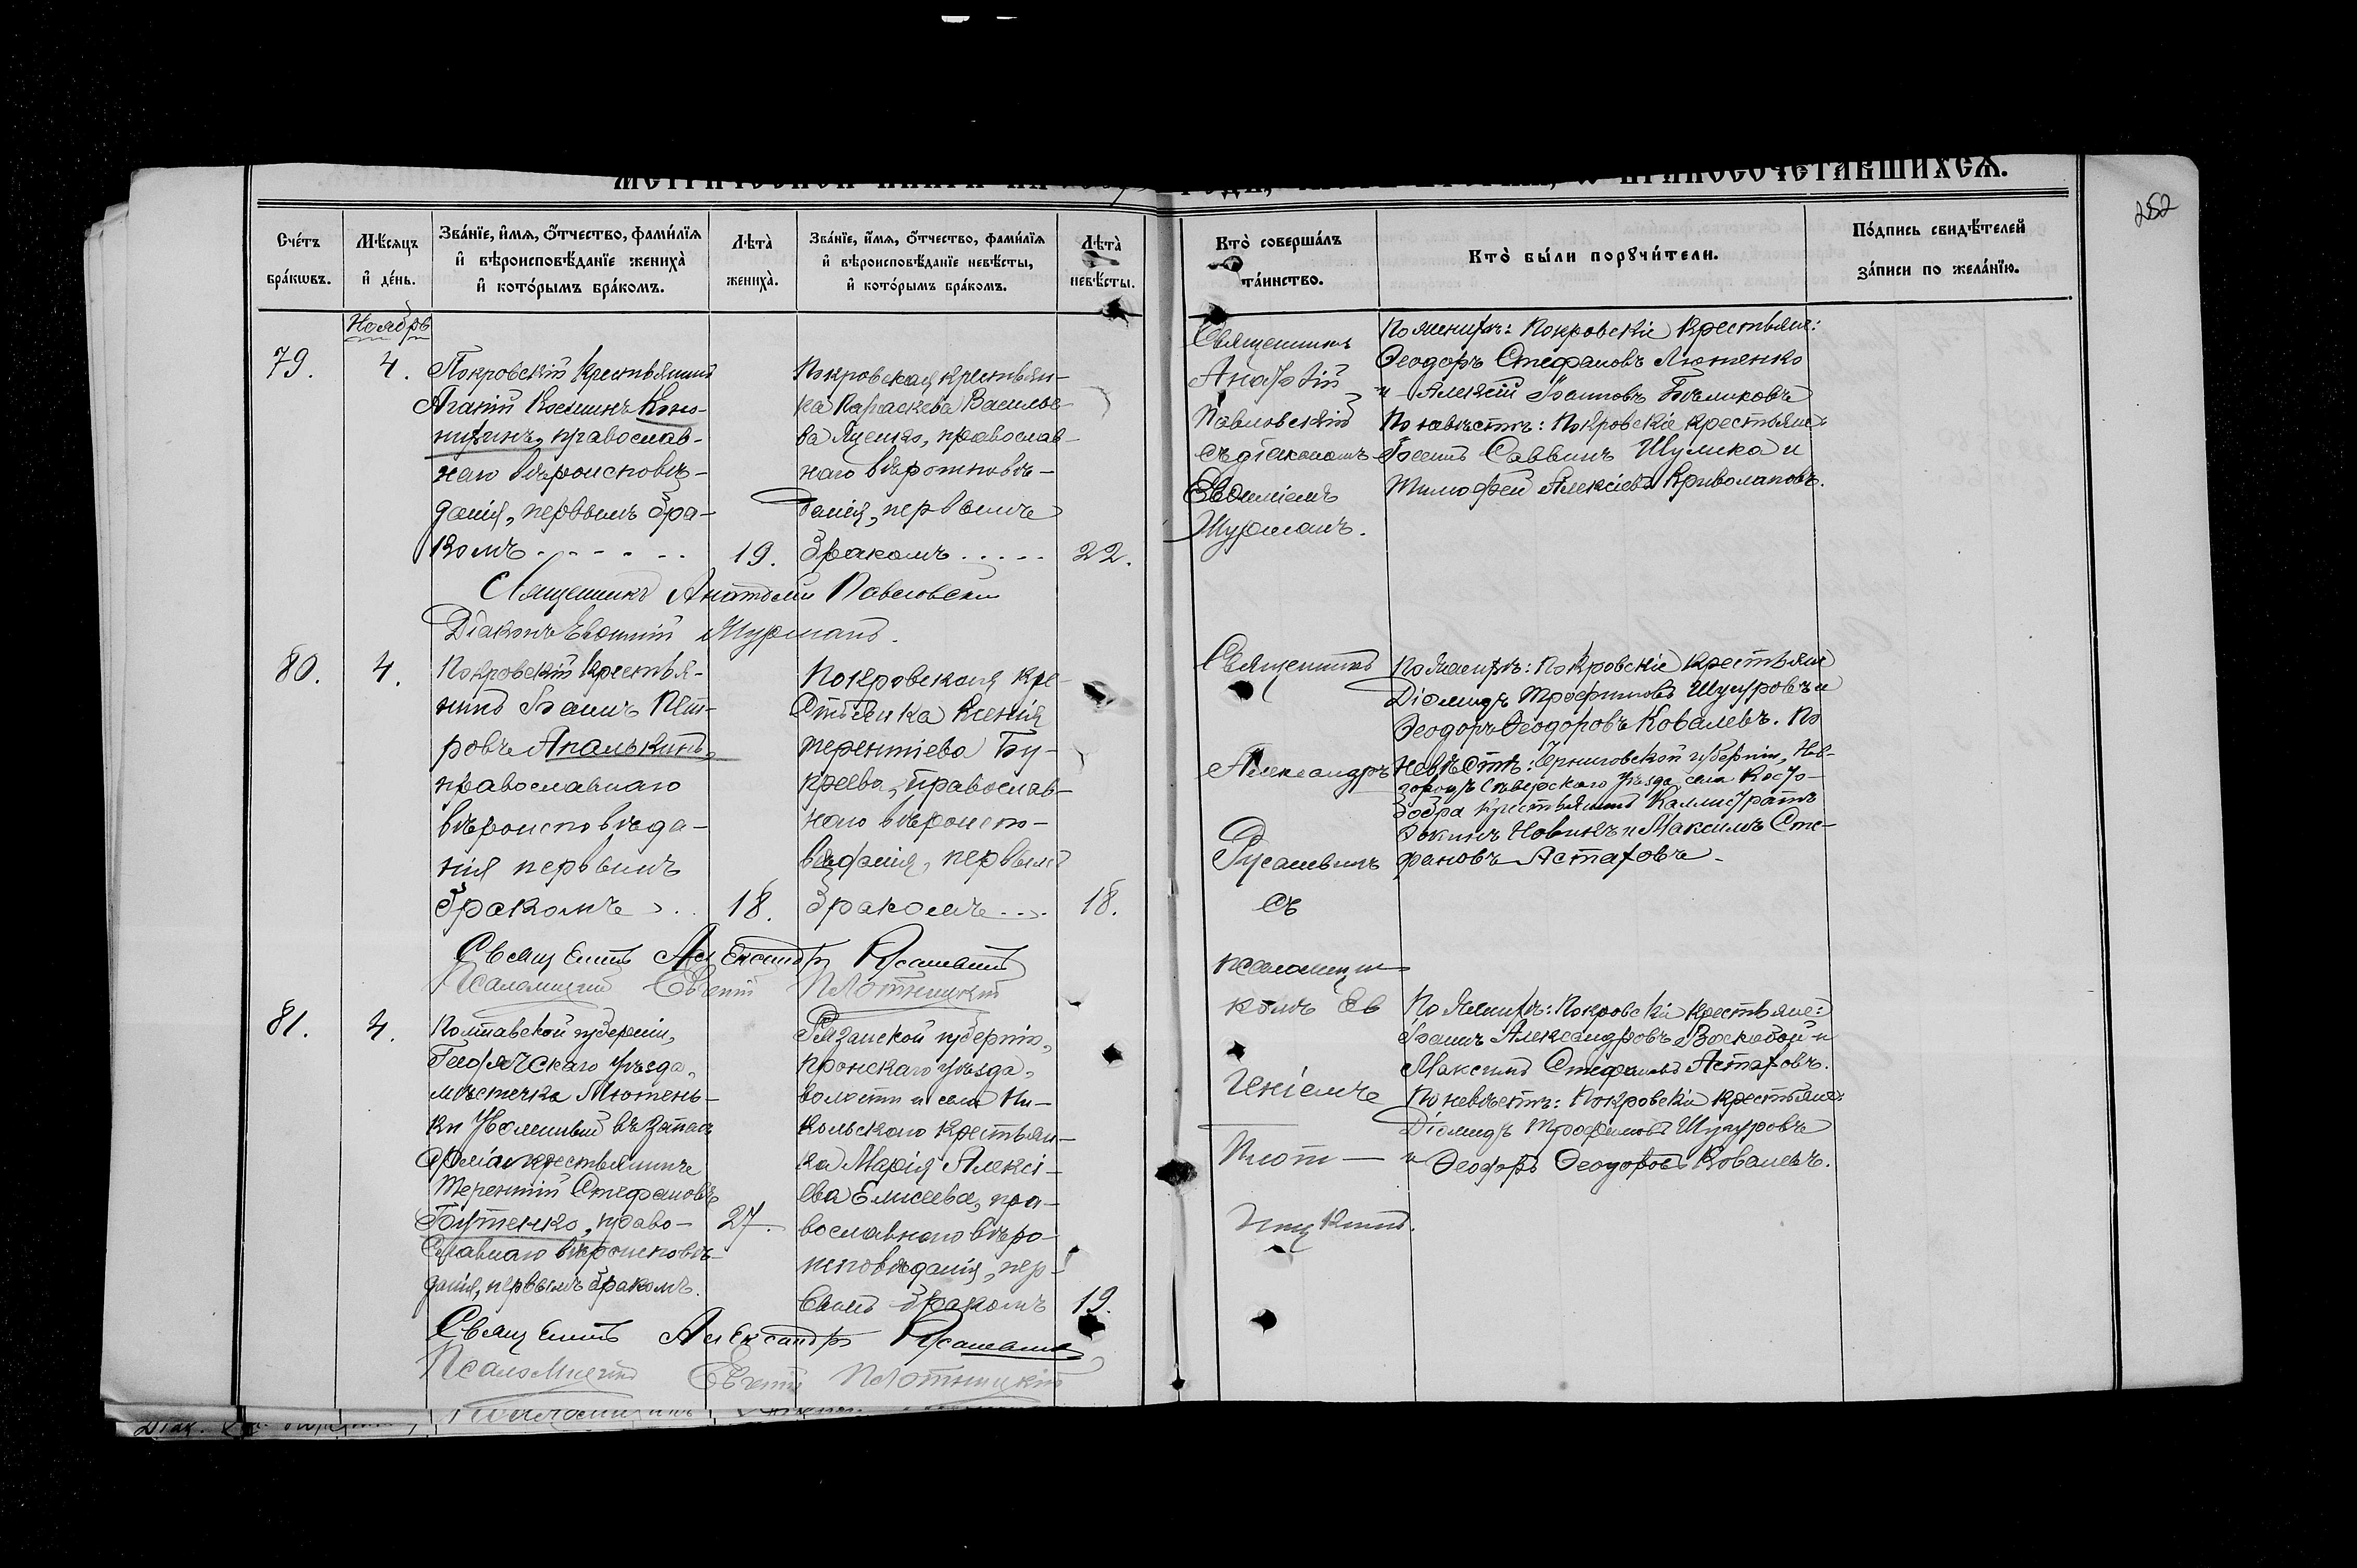 МЕТРИЧЕСКОЙ КНИГИ НА
ГОДЪ, ЧАСТЬ ВТОРАЯ, О БРАКОСОЧЕТАВШИХСЯ.
252
Сче́тъ бра́кѡвъ.
Мѣ́сяцъ и҆ де́нь.
Зва́нїе, и҆́мя, ѻ҆́тчество, фами́лїя
и҆ вѣроисповѣ́данїе женихà
и҆ кото́рымъ бра́комъ.
Лѣтà женихà.
Зва́нїе, и҆́мя, ѻ҆́тчество, фами́лїя
и҆ вѣроисповѣ́данїе невѣ́сты,
и҆ кото́рымъ бра́комъ.
Лѣтà невѣ́сты.
Кто̀ соверша́лъ та́инство.
Кто̀ бы́ли порꙋчи́тели.
По́дпись свидѣ́телей
за́писи по жела́нїю.
Ноябрь
79.
4.
Покровскій крестьянинъ
Агапій Косминъ Коно-
православ-
наго вѣроисповѣ-
данія, первымъ бра-
комъ - - - - -
19.
Покровская крестьян-
ка Параскева Василье-
ва Яценко, православ-
наго вѣроисповѣ-
данія, первымъ
бракомъ . . . . .
22.
Священникъ
Анатолій
Павловскій
съ діакономъ
Евѳиміемъ
Шурманъ.
По женихѣ: Покровскіе крестьяне:
Ѳеодоръ Стефановъ Лютенко
и Алексій Іоанновъ Бѣликовъ
По невѣстѣ: Покровскіе крестьяне:
Іоаннъ Саввинъ Шулика и
Тимофей Алексіевъ Криволаповъ.
Священникъ Анатолій Павловскій
Діаконъ Евѳимій Шурманъ.
80.
4.
Покровскій крестья-
нинъ Іоаннъ Пет-
ровъ Апалькинъ,
православнаго
вѣроисповѣда-
нія первымъ
бракомъ . .
18.
Покровская кре-
стьянка Ксенія
Терентіева Бу-
креева, православ-
наго вѣроиспо-
вѣданія, первымъ
бракомъ . . .
18.
Священникъ
Александръ
Русаневичъ
съ
псаломщи-
комъ Ев
геніемъ
Плот-
ницкимъ.
По женихѣ: Покровскіе крестьяне
Діомидъ Трофимовъ Шушуровъ и
Ѳеодоръ Ѳеодоровъ Ковалевъ. По
невѣстѣ: Черниговской губерніи, Нов-
городъ Сѣверскаго уѣзда села Косто-
бобра крестьянинъ Каллистратъ
Новикъ и Максимъ Сте-
фановъ Астаховъ.
Священникъ Александръ Русаневичъ
Псаломщикъ Евгеній Плотницкій
81.
4.
Полтавской губерніи,
Гадячскаго уѣзда,
мѣстечка Лютень-
ки уволенный въ запасъ
арміи крестьянинъ
Терентій Стефановъ
Бутенко, право-
славнаго вѣроисповѣ-
данія, первымъ бракомъ.
27.
Рязанской губерніи,
Пронскаго уѣзда,
волости и села Ни-
кольскаго крестьян-
ка Марія Алексі-
ева Елисеева, пра-
вославнаго вѣро-
исповѣданія, пер-
вымъ бракомъ
19.
По женихѣ: Покровскіе крестьяне:
Іоаннъ Александровъ Воскобой и
Максимъ Стефановъ Астаховъ.
По невѣстѣ: Покровскіе крестьяне:
Діомидъ Трофимовъ Шушуровъ
и Ѳеодоръ Ѳеодоровъ Ковалевъ.
Священникъ Александръ Русаневичъ
Псаломщикъ Евгеній Плотницкій